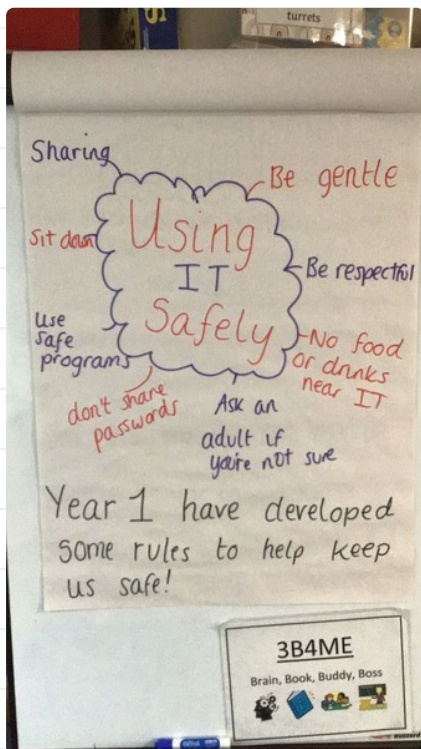 turrets
Sharing
Be gentle
Using
IT
Safely
Sit down
Be respectful
Use
safe
programs
No food
or drinks
near IT
don't share
passwords
Ask an
adult if
you're not sure
Year 1 have developed
some rules to help keep
us safe!
3B4ME
Brain, Book, Buddy, Boss